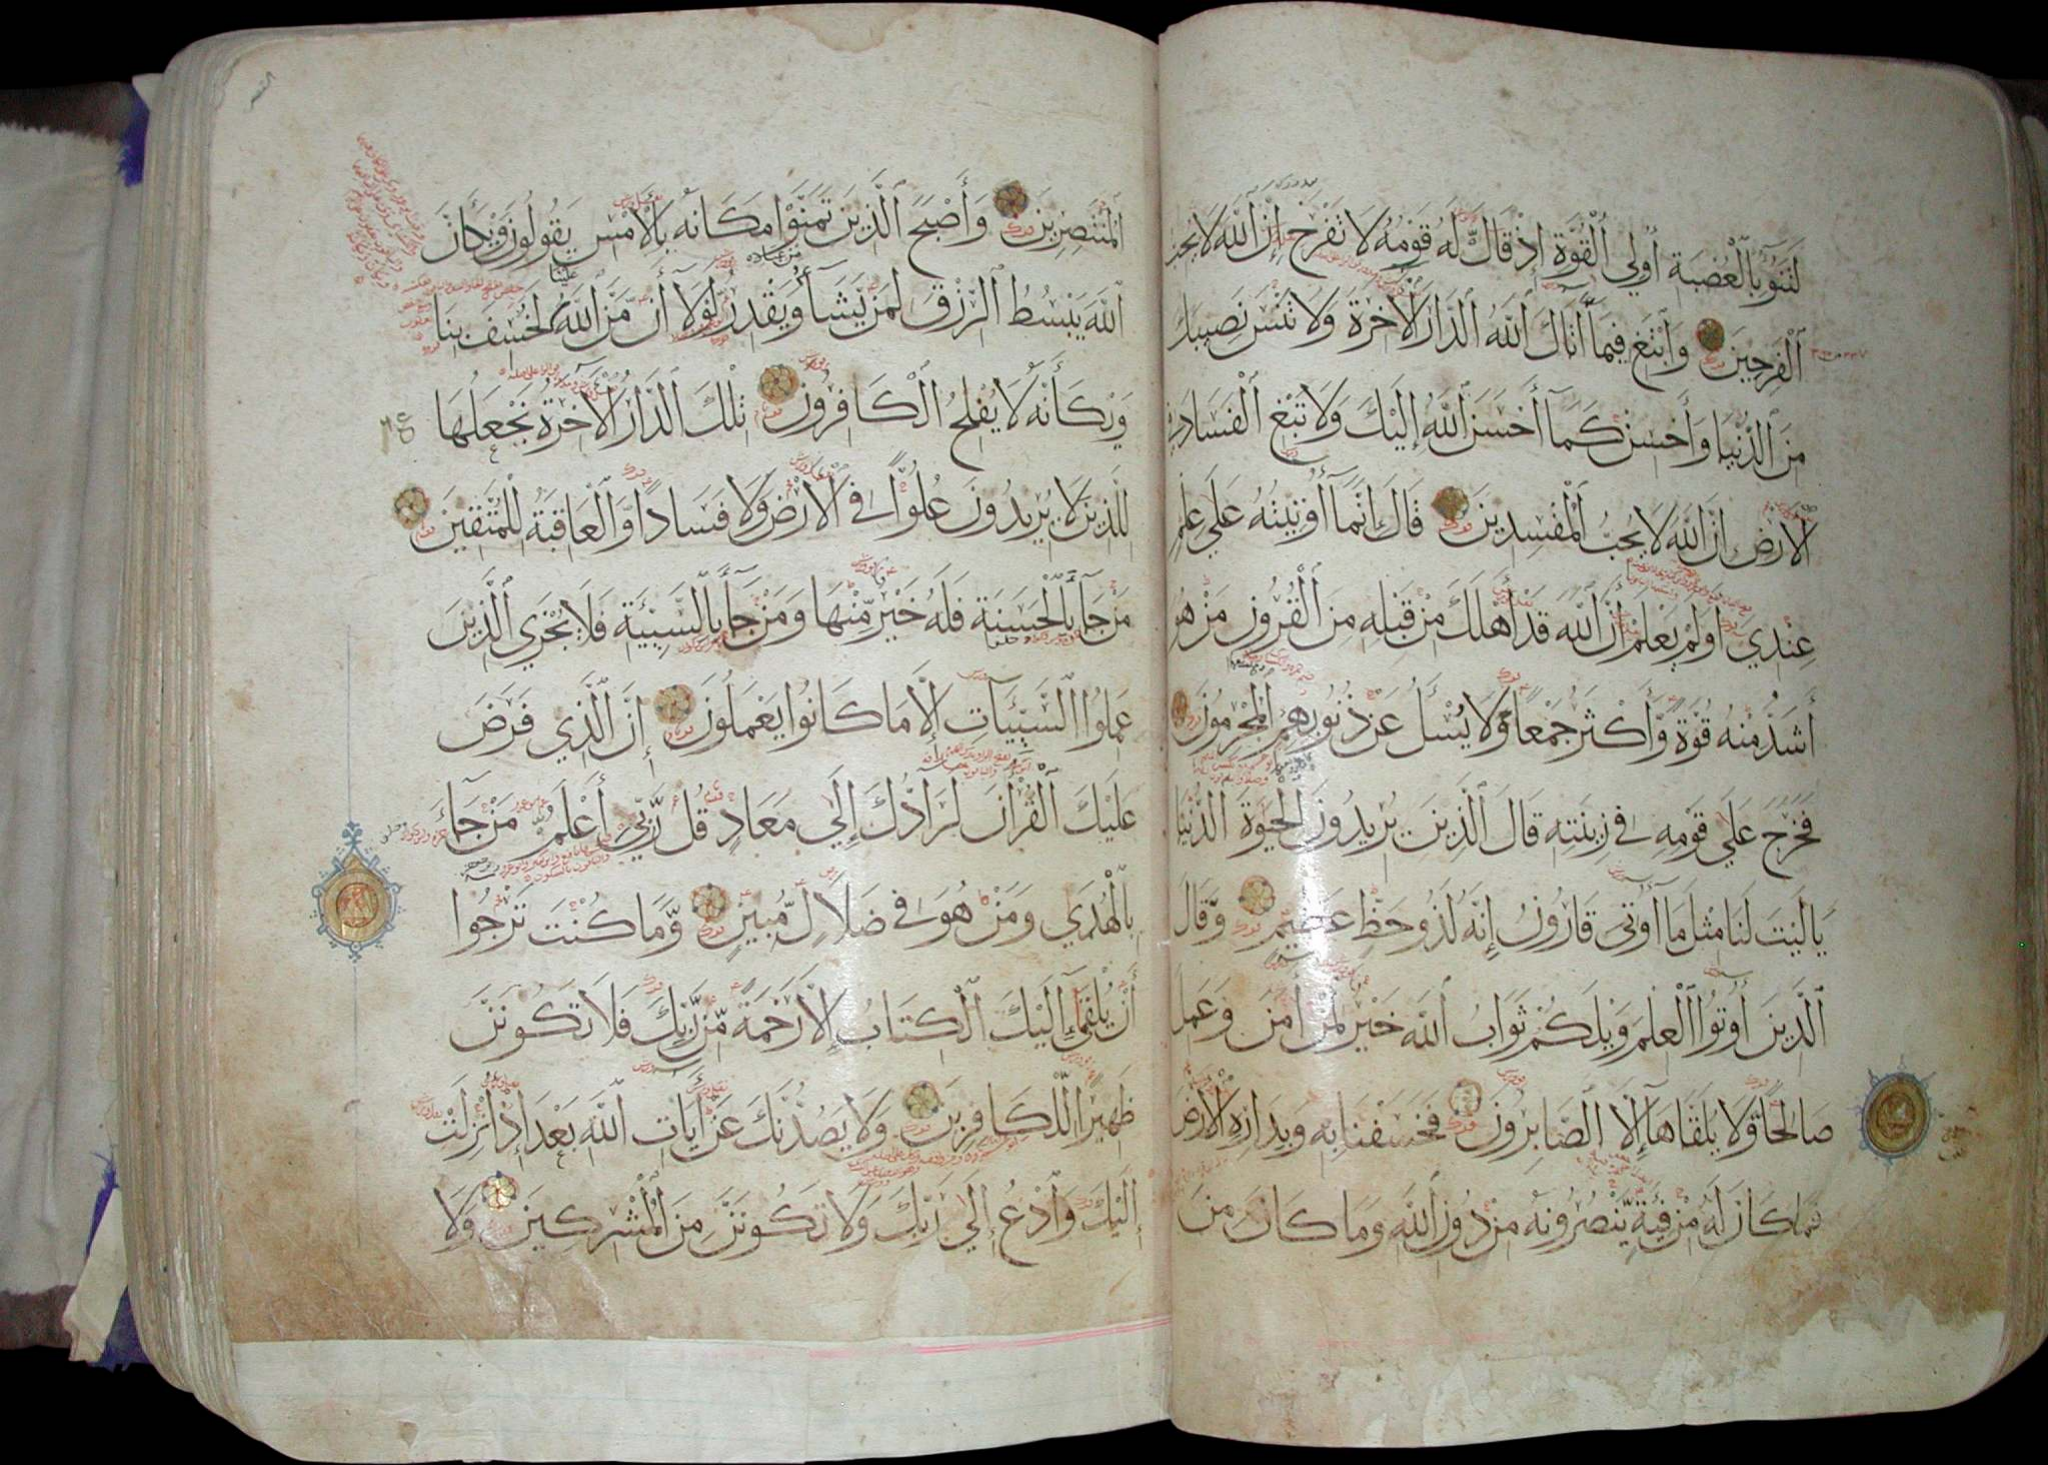 لَتَنُوأُ بِالْعُصْبَةِ أُولِي الْقُوَّةِ إِذْ قَالَ لَهُ قَوْمُهُ لَا تَفْرَحْ إِنَّ اللَّهَ لَا يُحِبُّ
الْفَرِحِينَ وَابْتَغِ فِيمَا آتَاكَ اللَّهُ الدَّارَ الْآخِرَةَ وَلَا تَنْسَ نَصِيبَكَ
مِنَ الدُّنْيَا وَأَحْسِنْ كَمَا أَحْسَنَ اللَّهُ إِلَيْكَ وَلَا تَبْغِ الْفَسَادَ فِي
الْأَرْضِ إِنَّ اللَّهَ لَا يُحِبُّ الْمُفْسِدِينَ قَالَ إِنَّمَا أُوتِيتُهُ عَلَى عِلْمٍ
عِنْدِي أَوَلَمْ يَعْلَمْ أَنَّ اللَّهَ قَدْ أَهْلَكَ مِنْ قَبْلِهِ مِنَ الْقُرُونِ مَنْ هُوَ
أَشَدُّ مِنْهُ قُوَّةً وَّأَكْثَرُ جَمْعًا وَّلَا يُسْئَلُ عَنْ ذُنُوبِهِمُ الْمُجْرِمُونَ
فَخَرَجَ عَلَى قَوْمِهِ فِي زِينَتِهِ قَالَ الَّذِينَ يُرِيدُونَ الْحَيٰوةَ الدُّنْيَا
يَا لَيْتَ لَنَا مِثْلَ مَا أُوتِيَ قَارُونُ إِنَّهُ لَذُو حَظٍّ عَظِيمٍ وَّقَالَ
الَّذِينَ أُوتُوا الْعِلْمَ وَيْلَكُمْ ثَوَابُ اللَّهِ خَيْرٌ لِّمَنْ آمَنَ وَعَمِلَ
صَالِحًا وَّلَا يُلَقَّاهَا إِلَّا الصَّابِرُونَ فَخَسَفْنَا بِهِ وَبِدَارِهِ الْأَرْضَ
فَمَا كَانَ لَهُ مِنْ فِئَةٍ يَّنْصُرُونَهُ مِنْ دُونِ اللَّهِ وَمَا كَانَ مِنَ
القصص
الْمُنْتَصِرِينَ وَأَصْبَحَ الَّذِينَ تَمَنَّوْا مَكَانَهُ بِالْأَمْسِ يَقُولُونَ وَيْكَأَنَّ
من عباده
اللَّهَ يَبْسُطُ الرِّزْقَ لِمَنْ يَّشَاءُ وَيَقْدِرُ لَوْلَا أَنْ مَّنَّ اللَّهُ عَلَيْنَا لَخُسِفَ بِنَا
وَيْكَأَنَّهُ لَا يُفْلِحُ الْكَافِرُونَ تِلْكَ الدَّارُ الْآخِرَةُ نَجْعَلُهَا
لِلَّذِينَ لَا يُرِيدُونَ عُلُوًّا فِي الْأَرْضِ وَلَا فَسَادًا وَّالْعَاقِبَةُ لِلْمُتَّقِينَ
مَنْ جَاءَ بِالْحَسَنَةِ فَلَهُ خَيْرٌ مِّنْهَا وَمَنْ جَاءَ بِالسَّيِّئَةِ فَلَا يُجْزَى الَّذِينَ
عَمِلُوا السَّيِّئَاتِ إِلَّا مَا كَانُوا يَعْمَلُونَ إِنَّ الَّذِي فَرَضَ
عَلَيْكَ الْقُرْآنَ لَرَادُّكَ إِلَى مَعَادٍ قُلْ رَّبِّي أَعْلَمُ مَنْ جَاءَ
بِالْهُدَى وَمَنْ هُوَ فِي ضَلَالٍ مُّبِينٍ وَّمَا كُنْتَ تَرْجُوا
أَنْ يُلْقَى إِلَيْكَ الْكِتَابُ إِلَّا رَحْمَةً مِّنْ رَّبِّكَ فَلَا تَكُونَنَّ
ظَهِيرًا لِّلْكَافِرِينَ وَلَا يَصُدُّنَّكَ عَنْ آيَاتِ اللَّهِ بَعْدَ إِذْ أُنْزِلَتْ
إِلَيْكَ وَادْعُ إِلَى رَبِّكَ وَلَا تَكُونَنَّ مِنَ الْمُشْرِكِينَ وَلَا